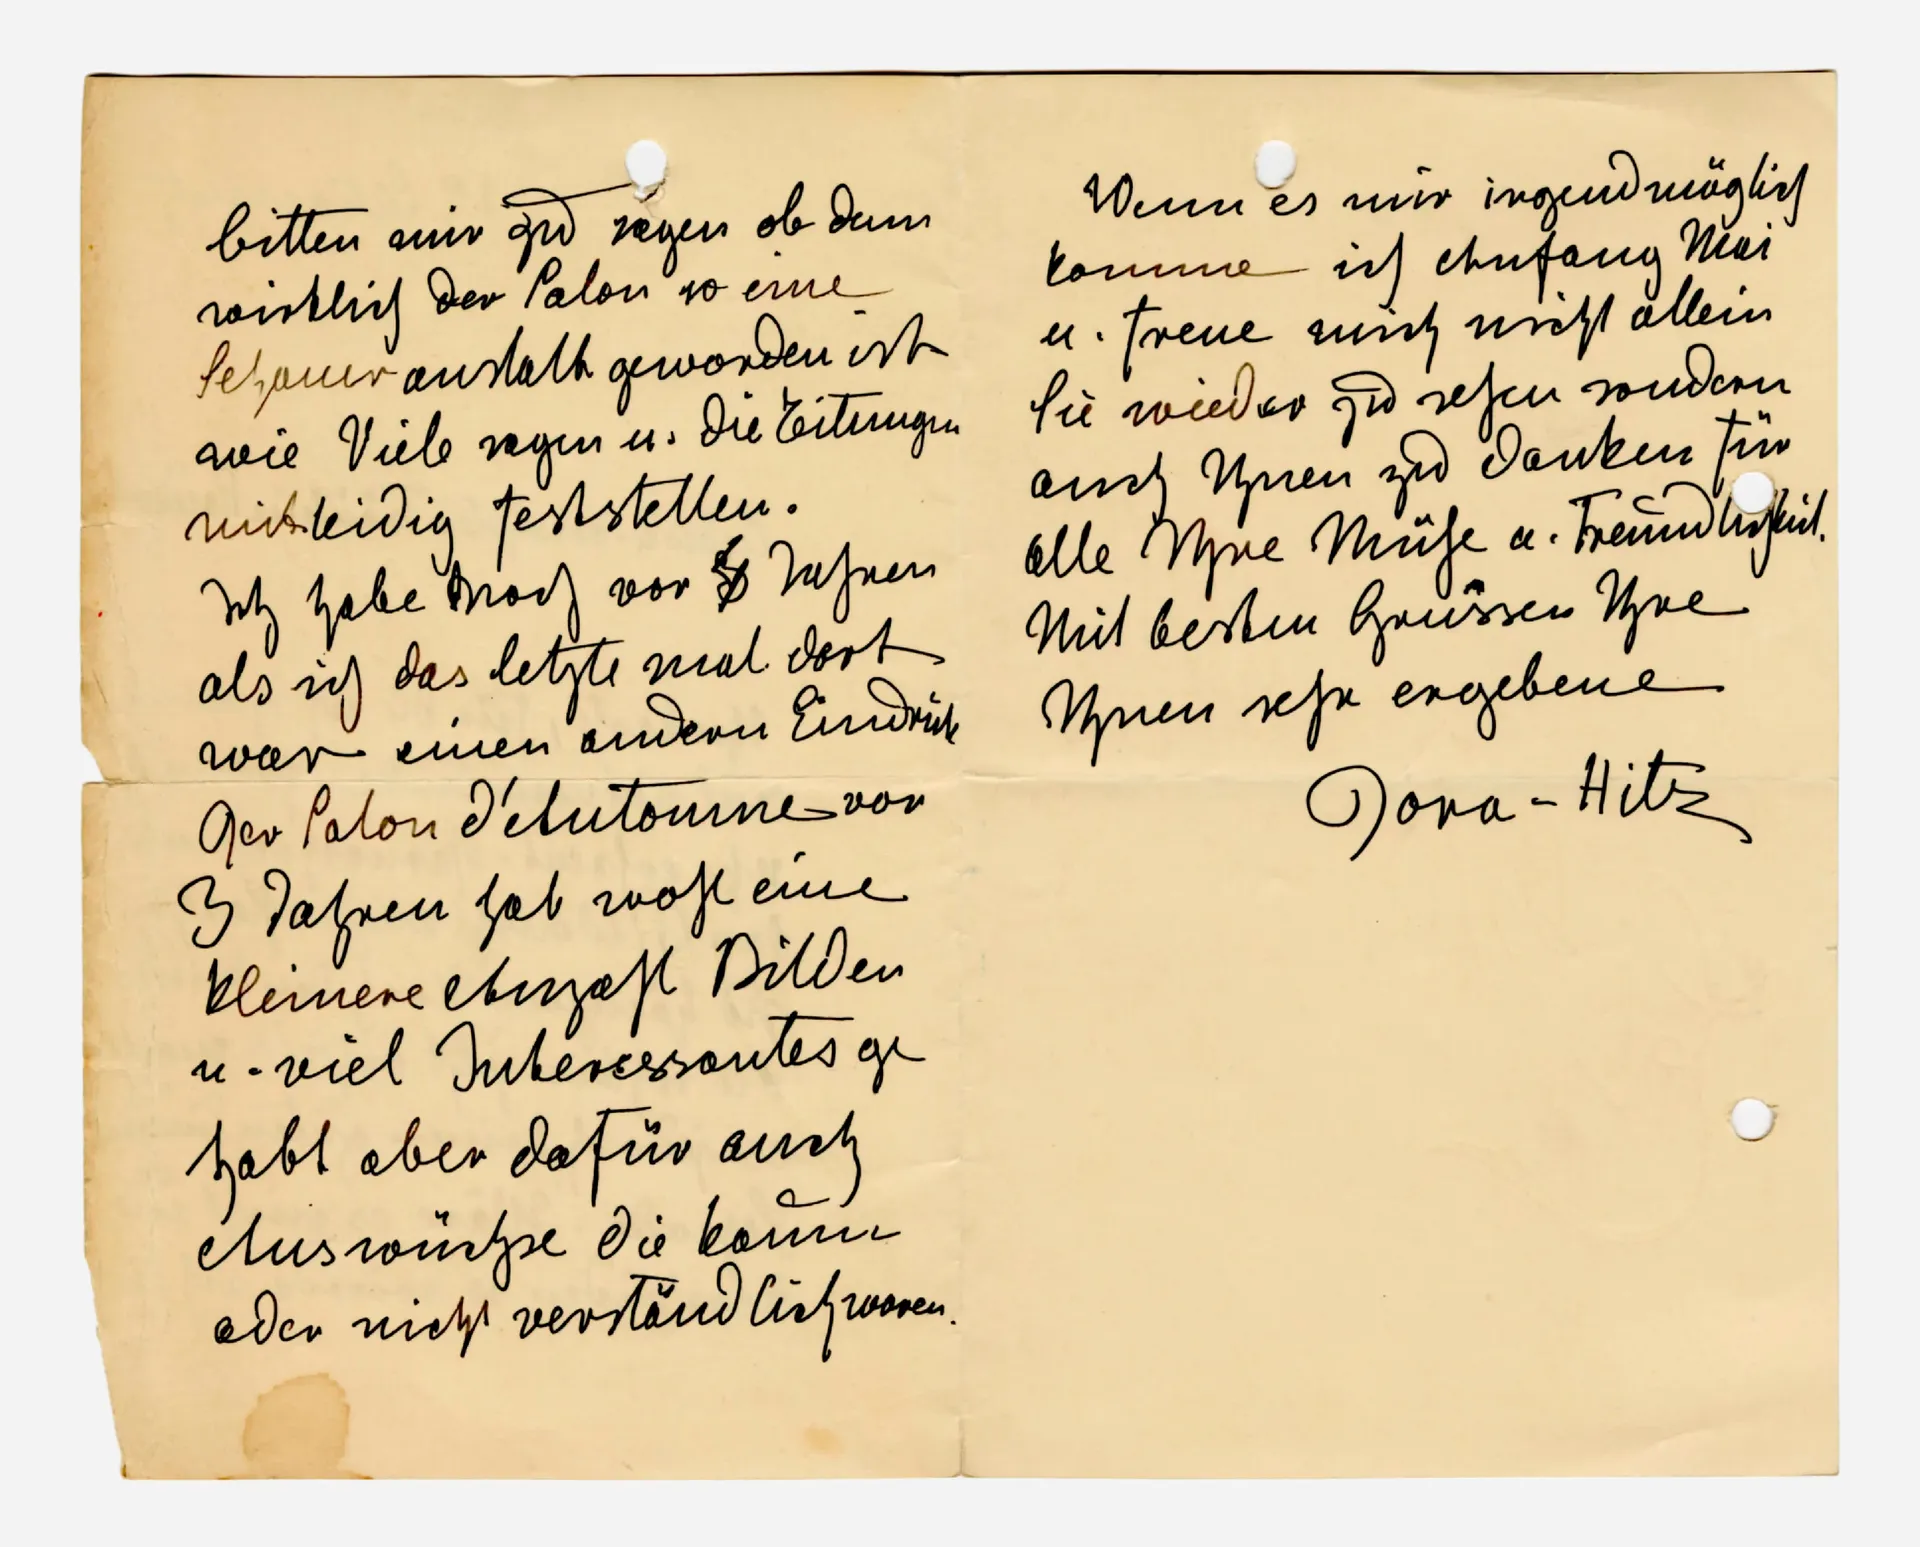 bitten mir zu sagen ob denn
wirklich der Salon so eine
Schaueranstalt geworden ist
wie Viele sagen u. die Zeitungen
mitleidig feststellen.
Ich habe noch vor Jahren
als ich das letzte mal dort
war einen andern Eindruck
Der Salon d'Automne vor
3 Jahren hat wohl eine
kleinere Anzahl Bilder
u. viel Interessantes ge
habt aber dafür auch
Auswüchse die kaum
oder nicht verständlich waren.
Wenn es mir irgendmöglich
komme ich Anfang Mai
u. freue mich nicht allein
Sie wieder zu sehen sondern
auch Ihnen zu danken für
alle Ihre Mühe u. Freundlichkeit.
Mit besten Grüssen Ihre
Ihnen sehr ergebene
Dora-Hitz